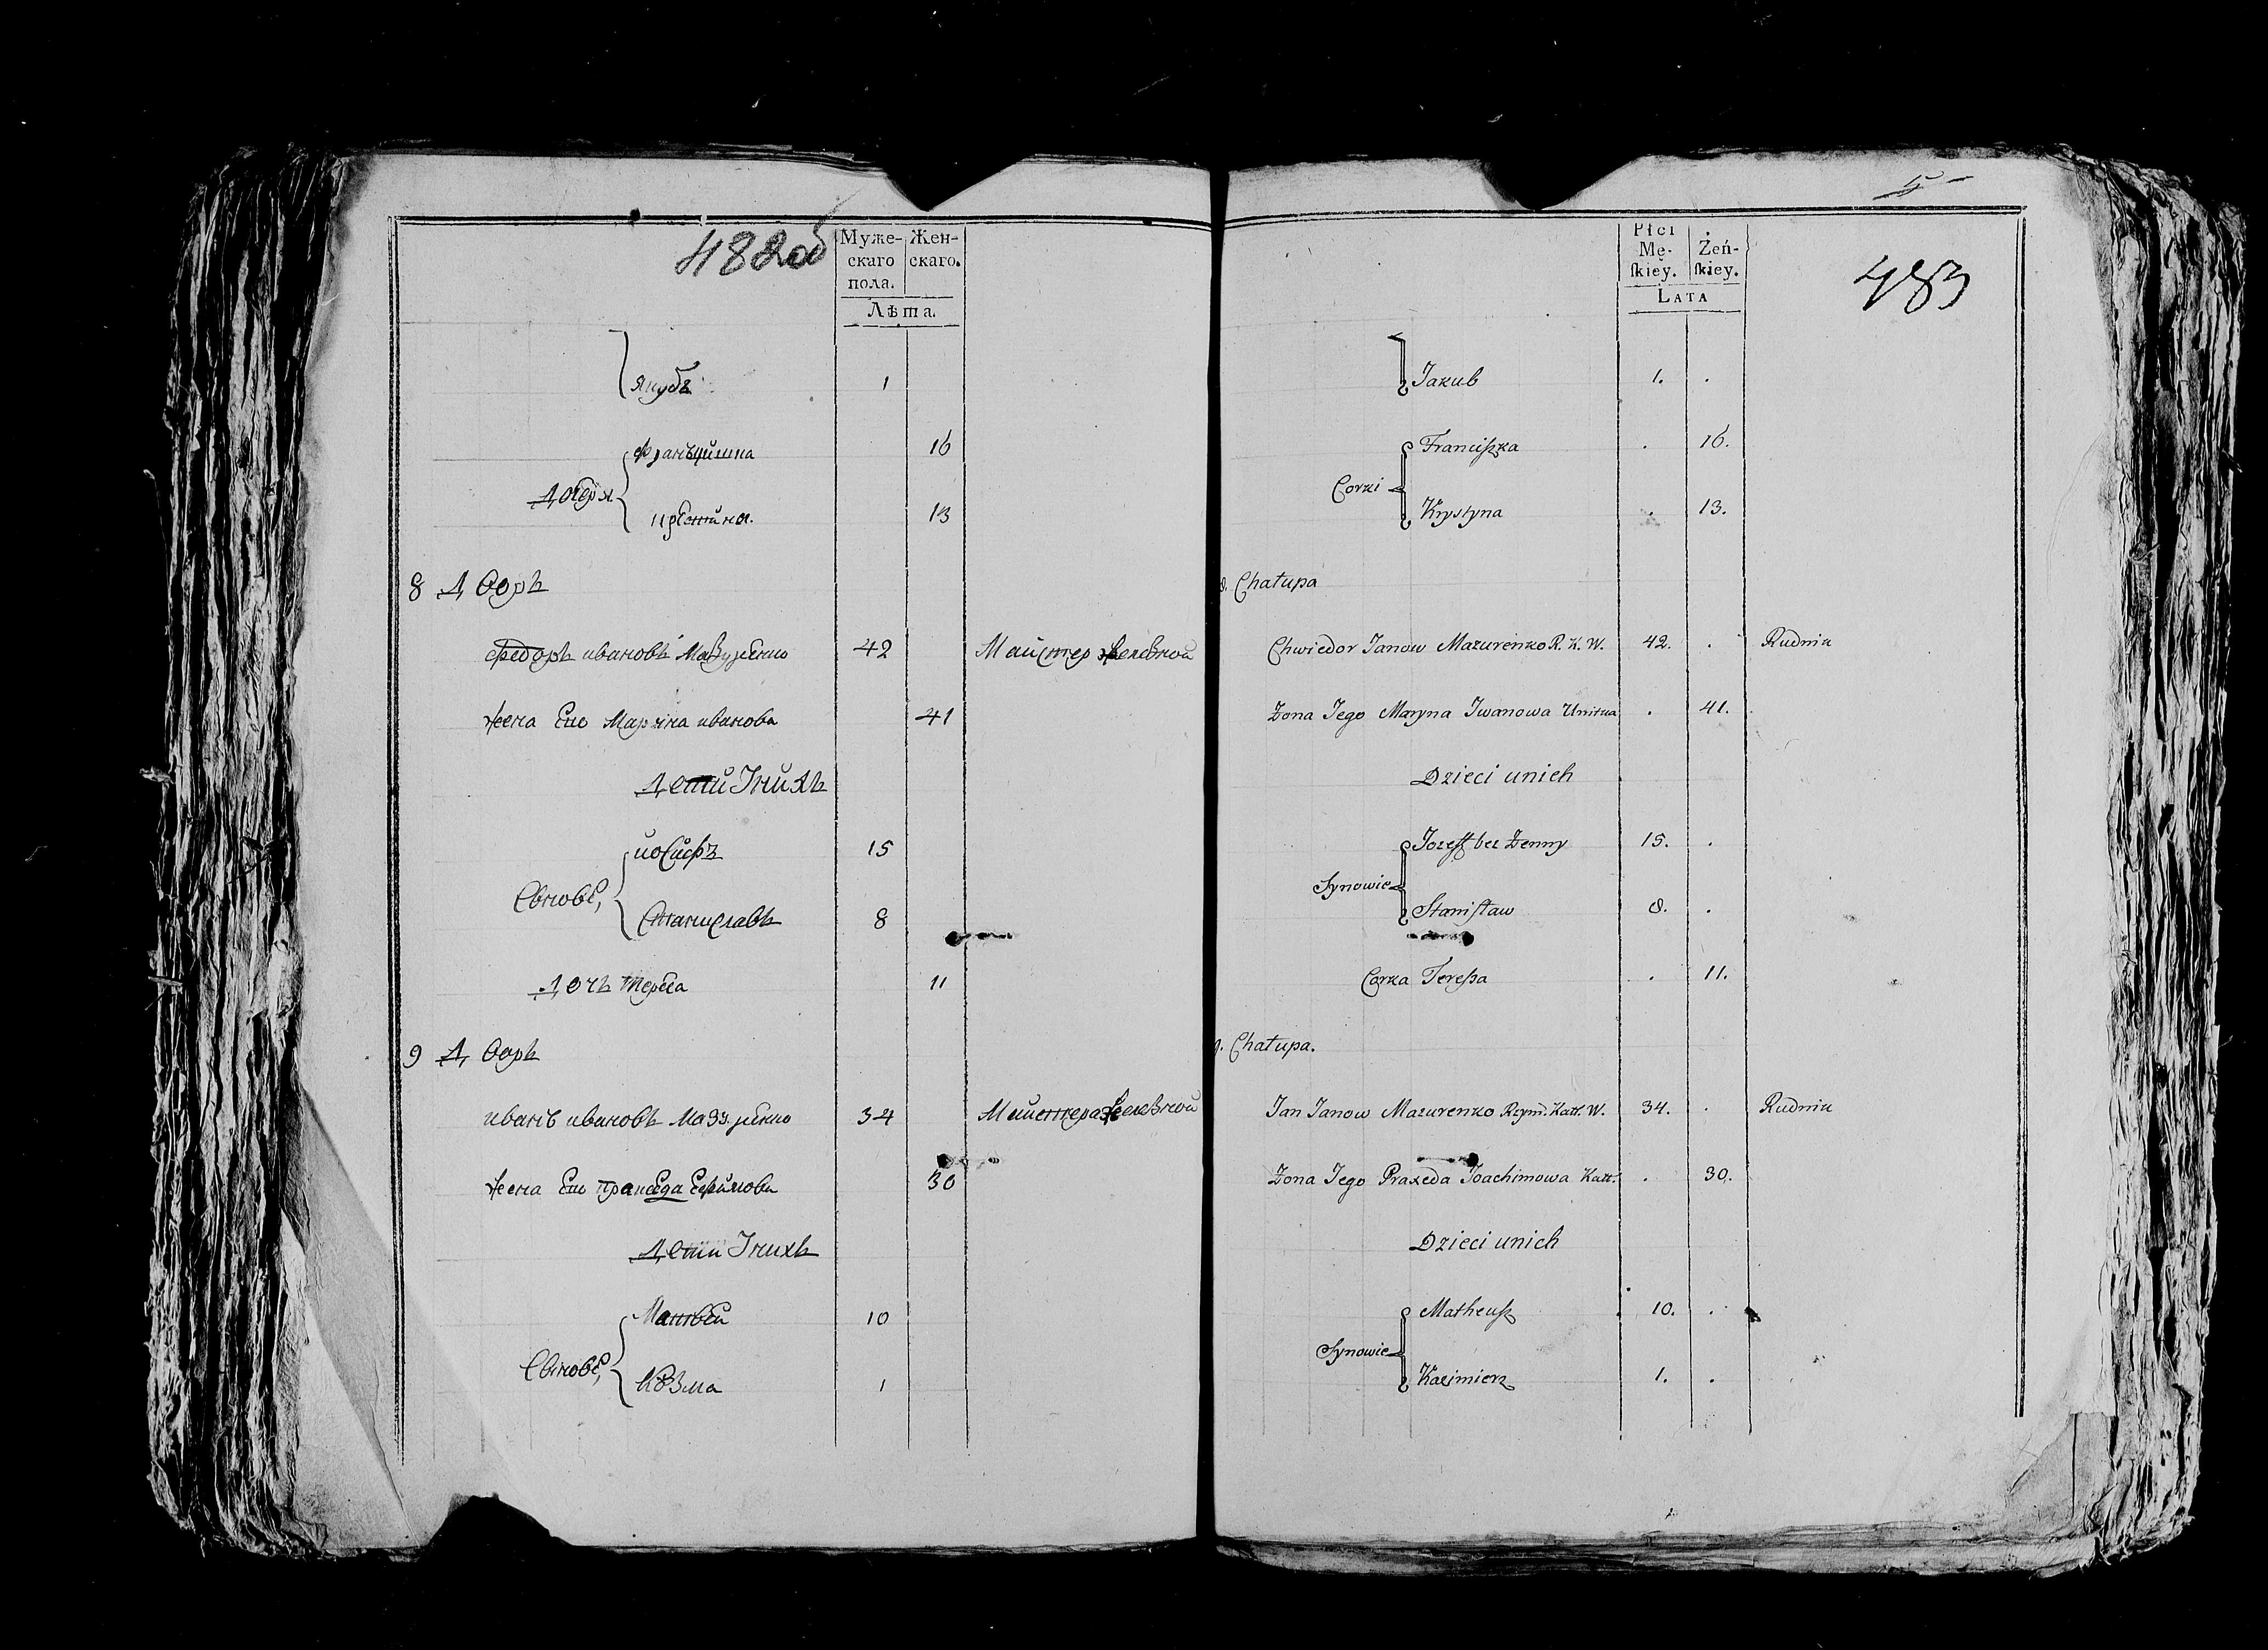 482об
Муже-
скаго
пола.
Жен-
скаго.
Лѣта.
Якубъ 1
Францишка 16
Дочеря
Крестина 13
8 Дворъ
Федоръ Ивановъ Мазуренко 42 Майстер железной
Жена Его Марина Иванова 41
Дети Iнихъ
Иосифъ 15
Сынове,
Станиславъ 8
Дочь Тереса 11
9 Дворъ
Иванъ Ивановъ Мазуренко 34 Майстера железной
Жена Его Пракседа Ефимова 30
Дети Iнихъ
Матвей 10
Сынове,
Козма 1
5
483
Płci
Mę-
ſkiey.
Żeń-
ſkiey.
Lata
Jakub 1. .
Franciſzka . 16.
Corki
Krystyna . 13.
8. Chałupa
Chwiedor Janow Mazurenko R. K. W. 42. . Rudnik
Żona Jego Maryna Jwanowa Unitka . 41.
Dzieci unich
Jozeff bez Żenny 15. .
Synowie
Staniſław 8. .
Corka Tereſsa . 11.
9. Chałupa.
Jan Janow Mazurenko Rzym. Kat. W. 34. . Rudnik
Żona Jego Praxeda Joachimowa Kat. . 30.
Dzieci unich
Matheuſz 10. .
Synowie
Kazimierz 1. .